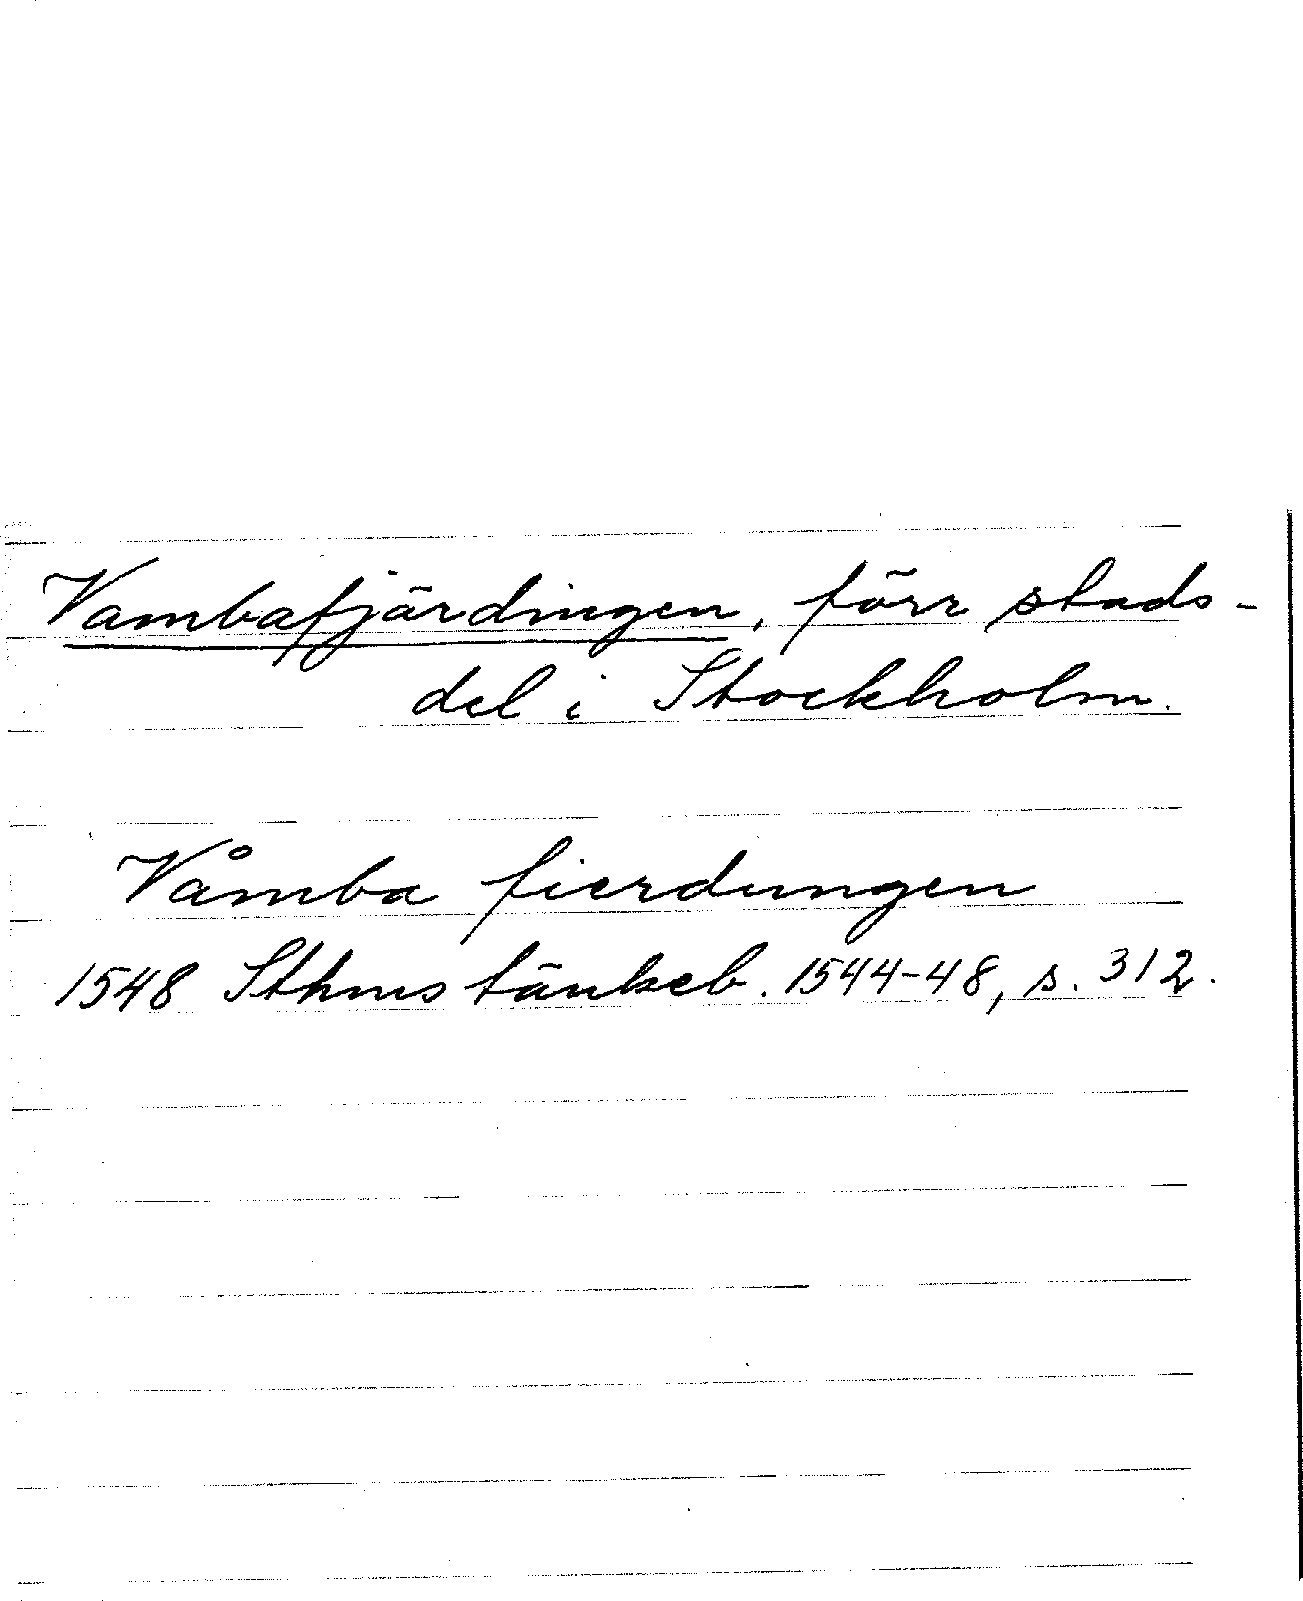 Vambafjärdingen, förr stads-
del i Stockholm.
Våmba fierdungen
1548 Sthms tänkeb. 1544-48, s. 312.